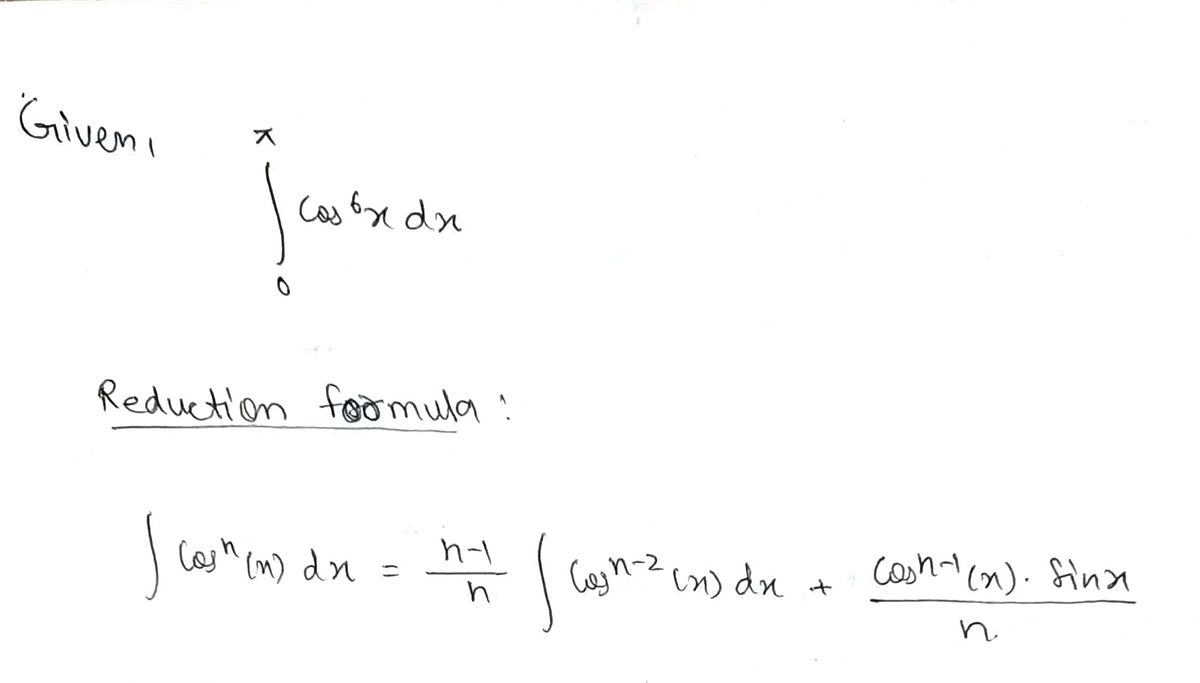 Given,
∫₀^π cos⁶x dx
Reduction formula :
∫ cosⁿ(x) dx = (n-1)/n ∫ cosⁿ⁻²(x) dx + (cosⁿ⁻¹(x). sinx)/n.